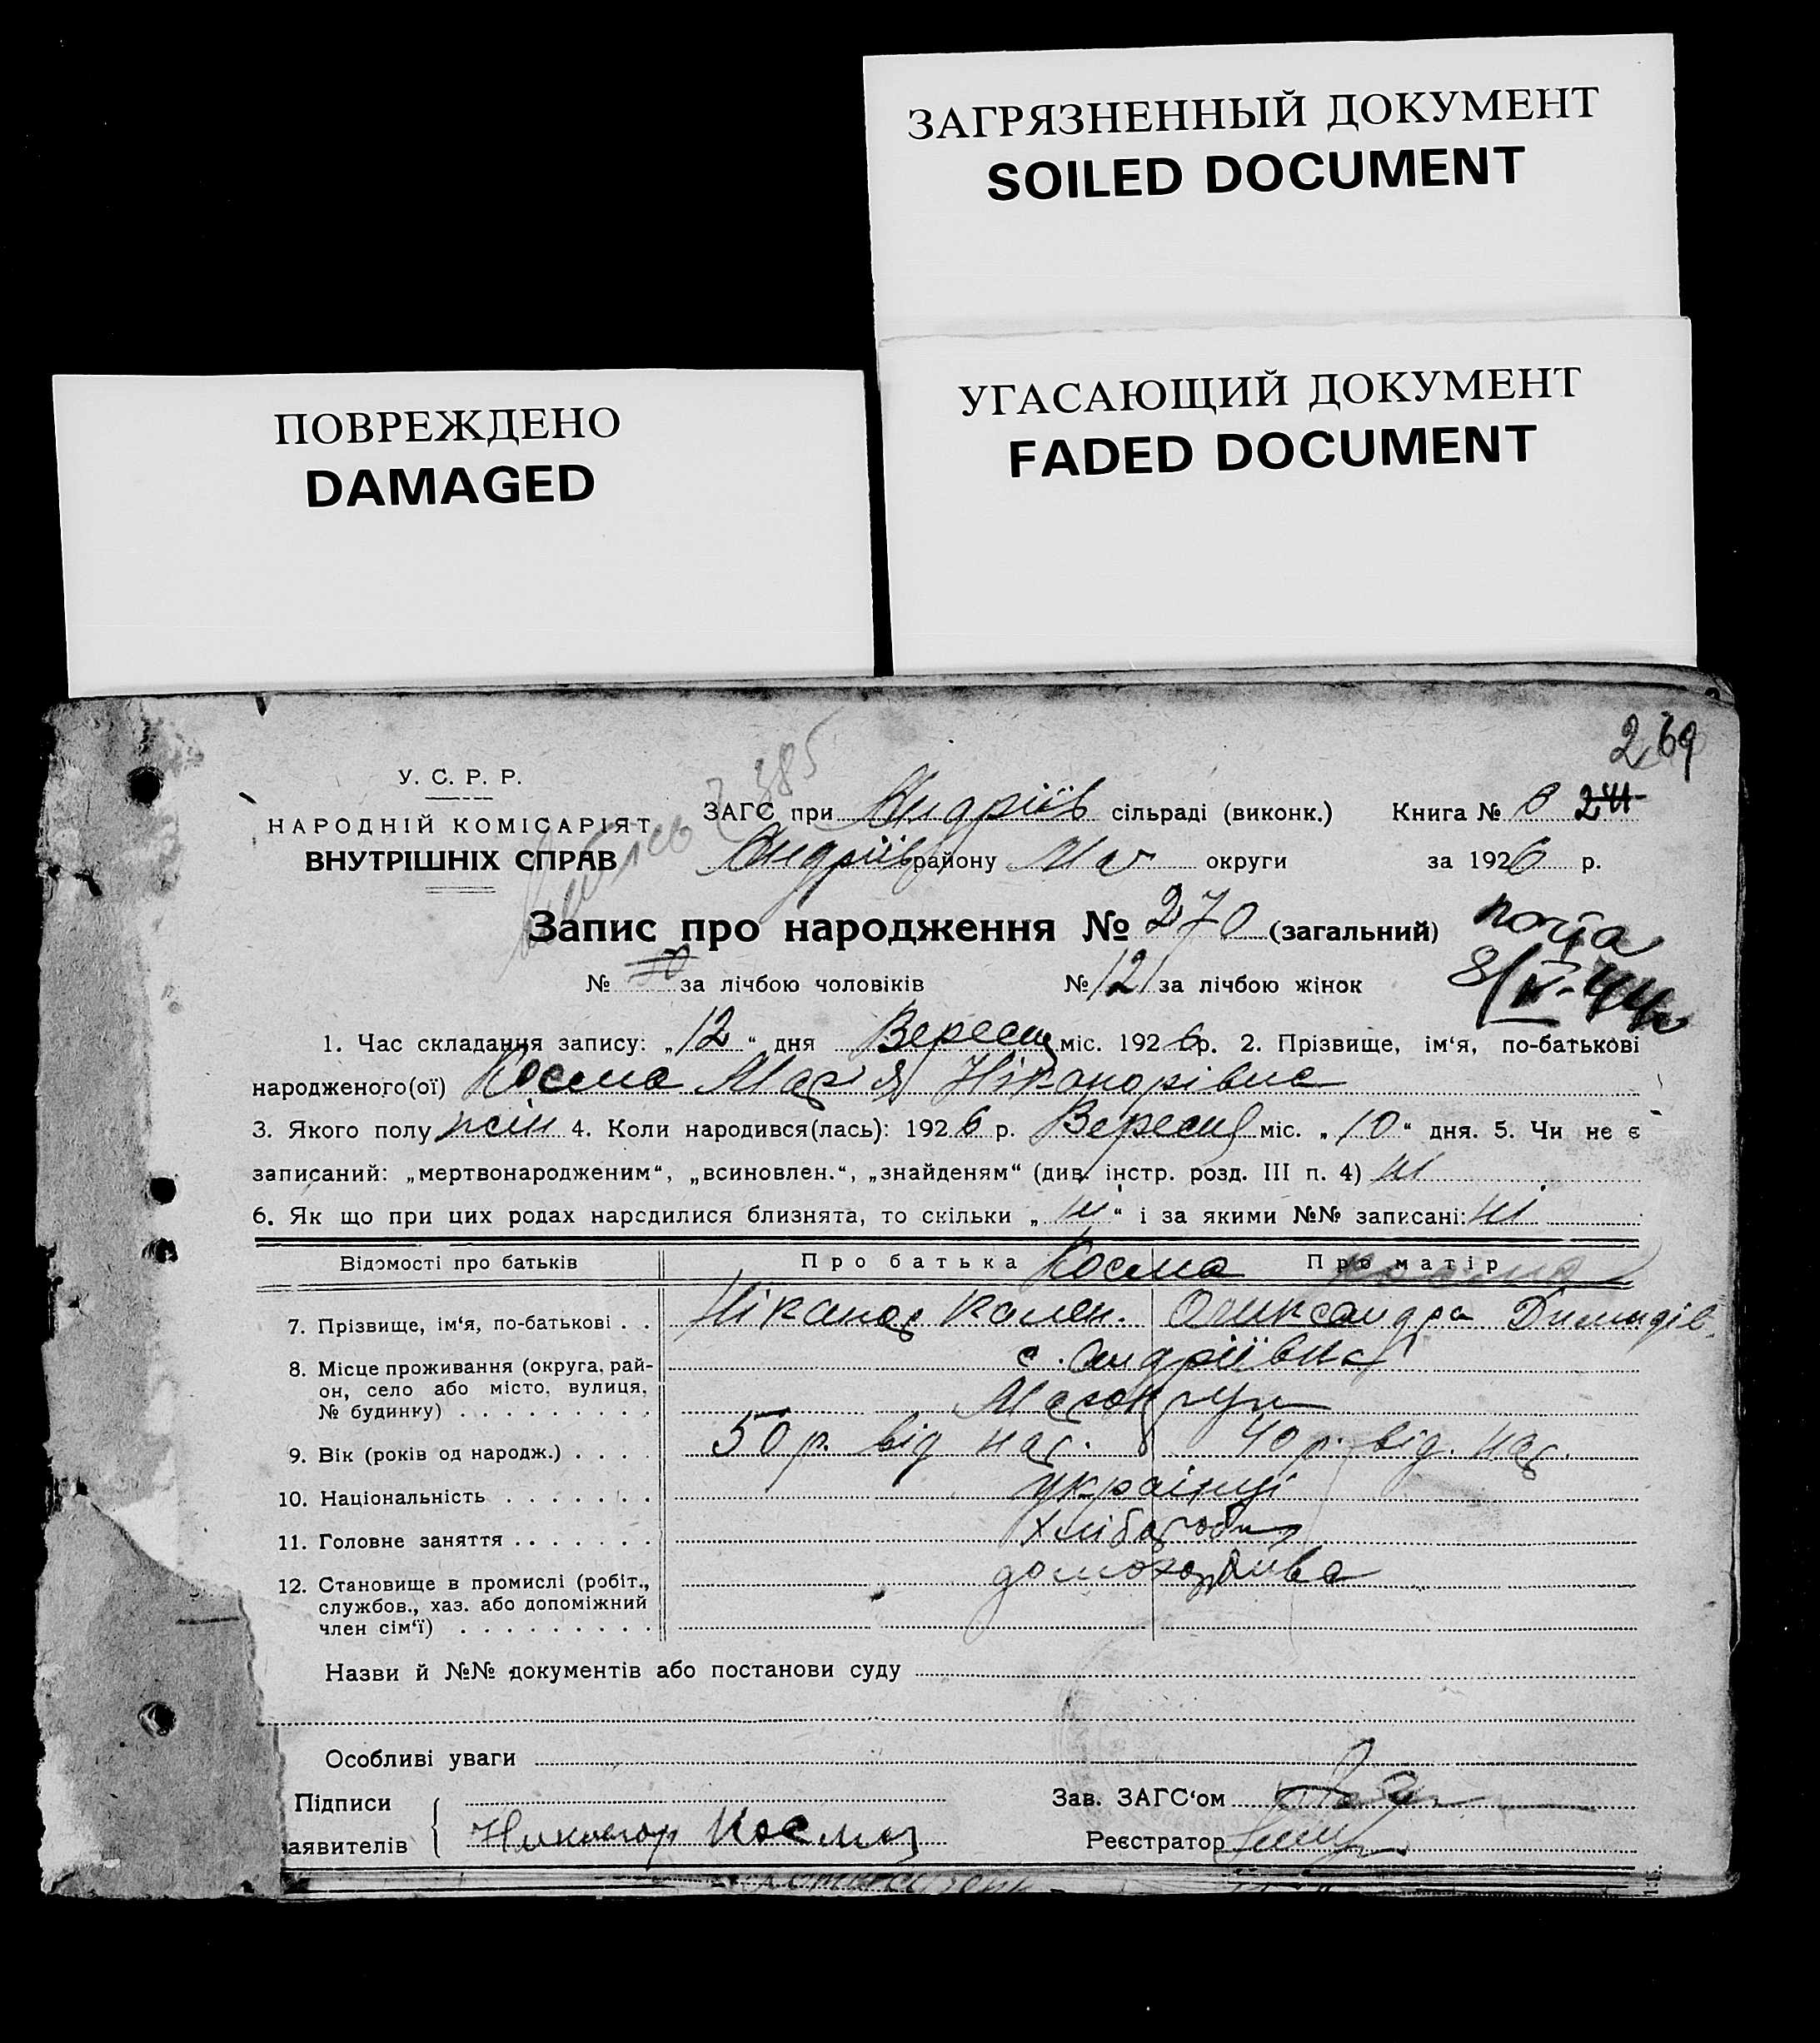 ЗАГРЯЗНЕННЫЙ ДОКУМЕНТ
SOILED DOCUMENT
УГАСАЮЩИЙ ДОКУМЕНТ
FADED DOCUMENT
ПОВРЕЖДЕНО
DAMAGED
269
385
У. С. Р. Р.
НАРОДНІЙ КОМІСАРІЯТ
ВНУТРІШНІХ СПРАВ
ЗАГС при Андріїв сільраді (виконк.) Книга № 6 241
Андріїв району Мар округи за 1926 р.
Запис про народження № 270 (загальний)
№ за лічбою чоловіків № 121 за лічбою жінок
почта
1. Час складання запису: „12“ дня Вересня міс. 1926 р. 2. Прізвище, ім‘я, по-батькові
народженого(ої) Косма Марія Ніканорівна
3. Якого полу жін 4. Коли народився(лась): 1926 р. Вересня міс. „10“ дня. 5. Чи не є
записаний: „мертвонародженим“, „всиновлен.“, „знайденям“ (див. інстр. розд. III п. 4) ні
6. Як що при цих родах народилися близнята, то скільки „ні“ і за якими №№ записані: ні
Відомості про батьків Про батька Косма Про матір
7. Прізвище, ім‘я, по-батькові . . Ніканор Колен. Олександра
8. Місце проживання (округа, рай-
он, село або місто, вулиця,
№ будинку) . . . . . . . . .
с. Андріївка
Маріокруги
9. Вік (років од народж.) . . . . 50 р. від нар. 40 р. від. нар.
10. Національність . . . . . . . українці
11. Головне заняття . . . . . . . хлібороби
12. Становище в промислі (робіт.,
службов., хаз. або допоміжний
член сім‘ї) . . . . . . . . .
Назви й №№ документів або постанови суду
Особливі уваги
Підписи
аявителів Никанор Косма
Зав. ЗАГС‘ом
Реєстратор